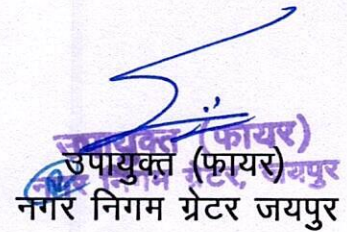 उपायुक्त (फायर)
नगर निगम ग्रेटर, जयपुर
उपायुक्त (फायर)
नगर निगम ग्रेटर जयपुर